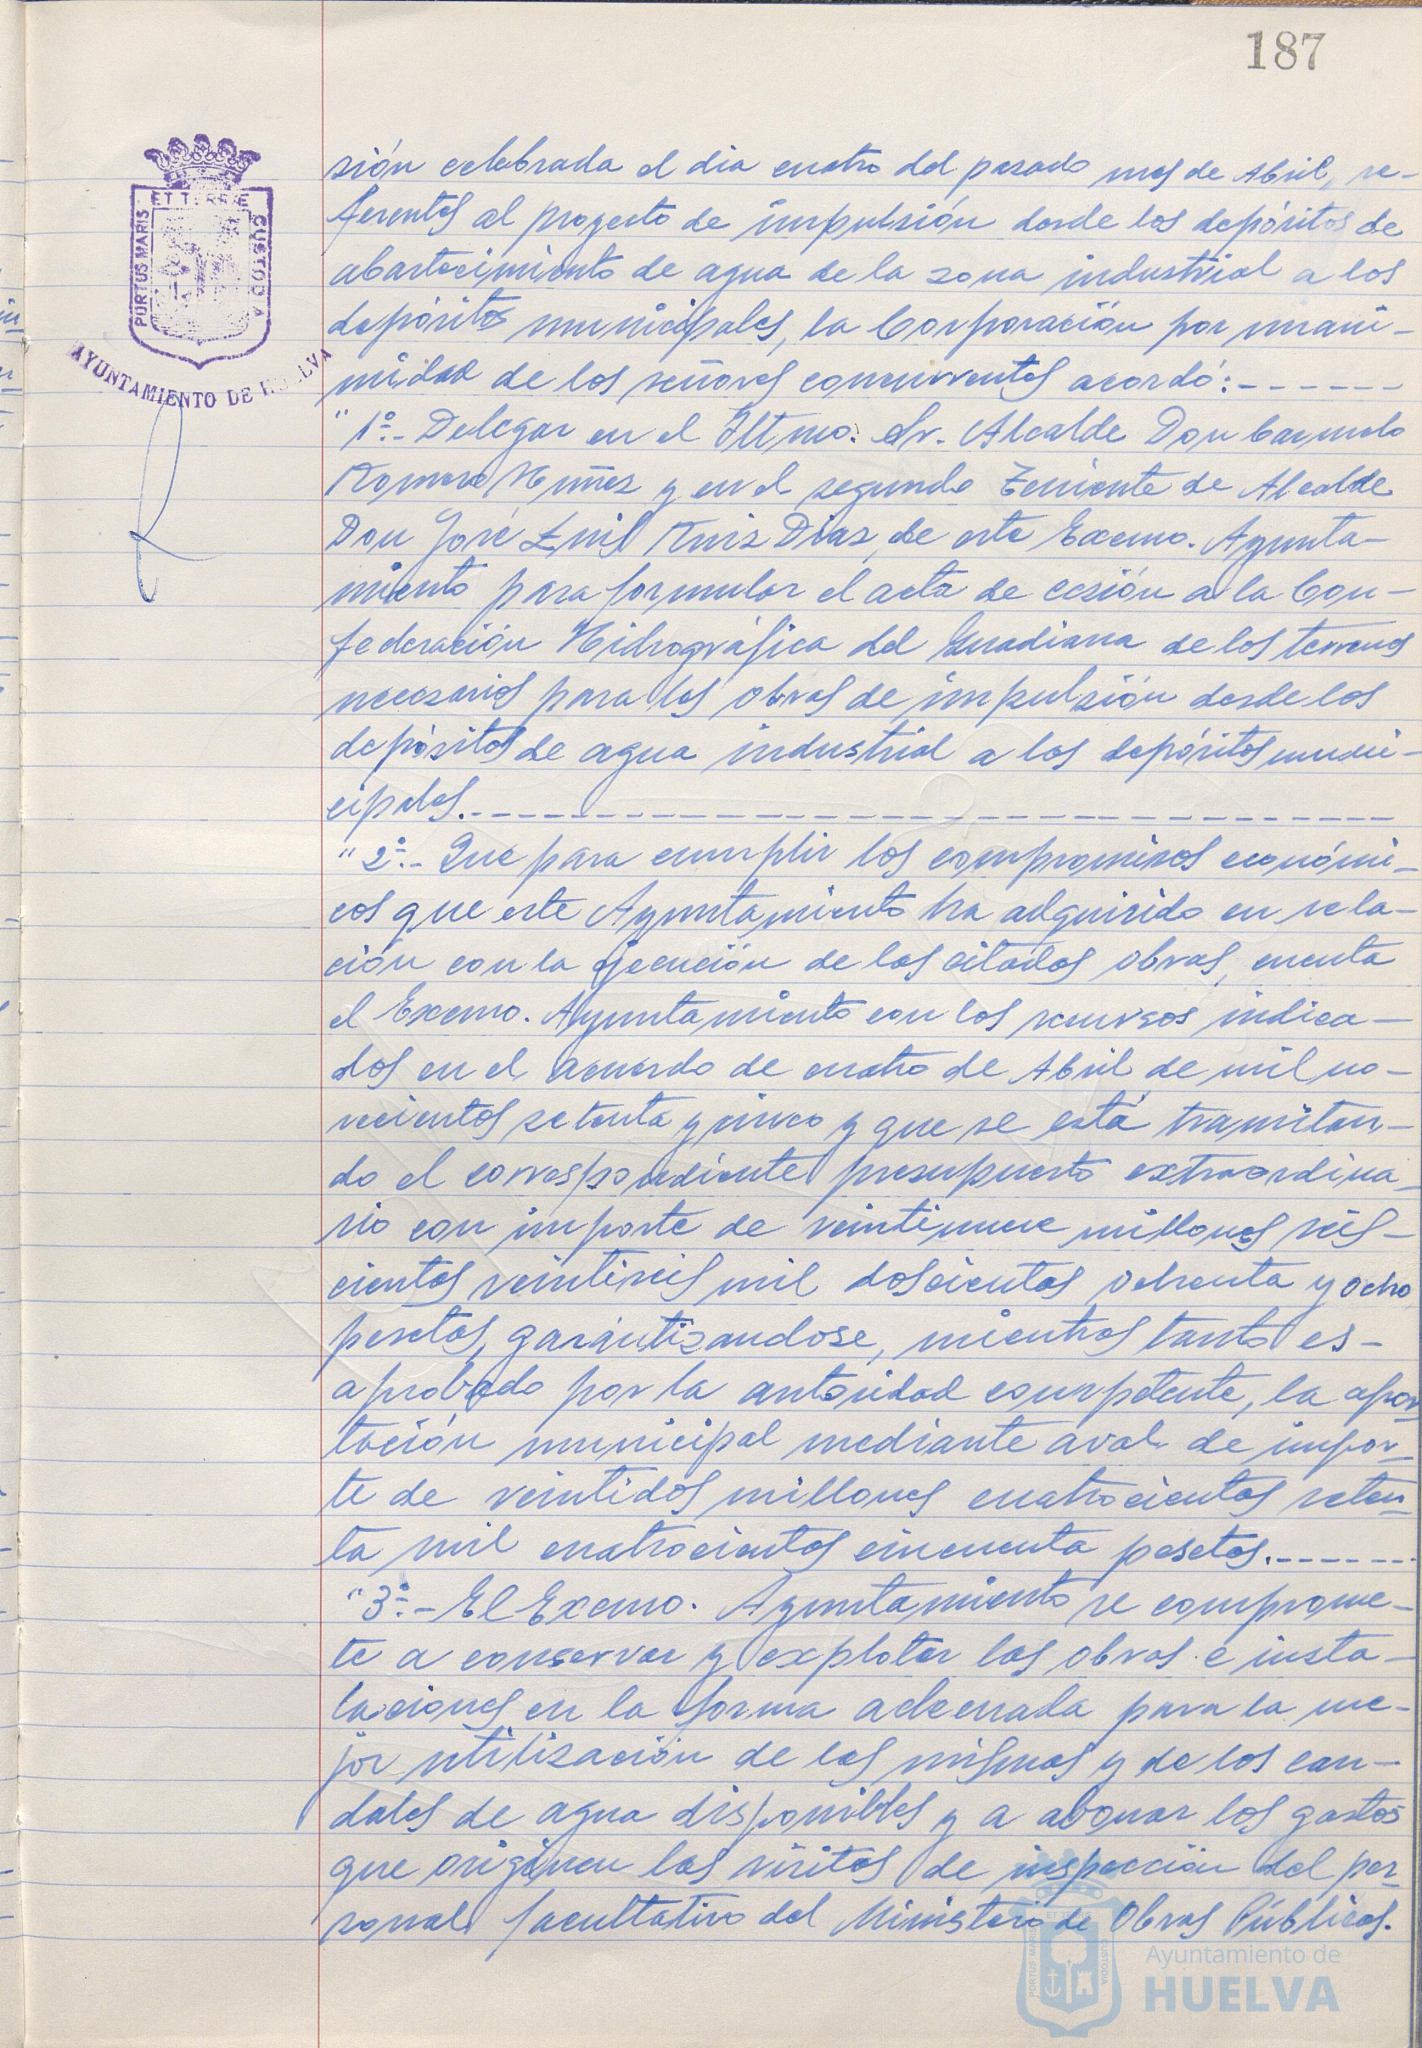 187
ET TERRE
PORTUS MARIS
CUSTODIA
AYUNTAMIENTO DE HUELVA
sión celebrada el dia cuatro del pasado mes de Abril, re-
ferentes al proyecto de impulsión desde los depósitos de
abastecimiento de agua de la zona industrial a los
depósitos municipales, la Corporación por unani-
midad de los señores concurrentes acordó:------
"1º.- Delegar en el Iltmo. Sr. Alcalde Don Carmelo
Romero Núñez y en el segundo Teniente de Alcalde
Don José Luis Ruiz Díaz, de este Excmo. Ayunta-
miento para formular el acta de cesión a la Con-
federación Hidrográfica del Guadiana de los terrenos
necesarios para las obras de impulsión desde los
depósitos de agua industrial a los depósitos muni-
cipales.------------------------------
"2º.- Que para cumplir los compromisos económi-
cos que este Ayuntamiento ha adquirido en rela-
ción con la ejecución de las citadas obras, cuenta
el Excmo. Ayuntamiento con los recursos indica-
dos en el acuerdo de cuatro de Abril de mil no-
vecientos setenta y cinco y que se está tramitan-
do el correspondiente presupuesto extraordina-
rio con importe de veintinueve millones seis-
cientas veintiseis mil doscientas ochenta y ocho
pesetas, garantizandose, mientras tanto es-
aprobado por la autoridad competente, la apor-
tación municipal mediante aval de impor-
te de veintidos millones cuatrocientas seten-
ta mil cuatrocientas cincuenta pesetas.------
"3º.- El Excmo. Ayuntamiento se comprome-
te a conservar y explotar las obras e insta-
laciones en la forma adecuada para la me-
jor utilización de las mismas y de los cau-
dales de agua disponibles y a abonar los gastos
que originen las visitas de inspección del per-
sonal facultativo del Ministerio de Obras Públicas.
Ayuntamiento de
HUELVA